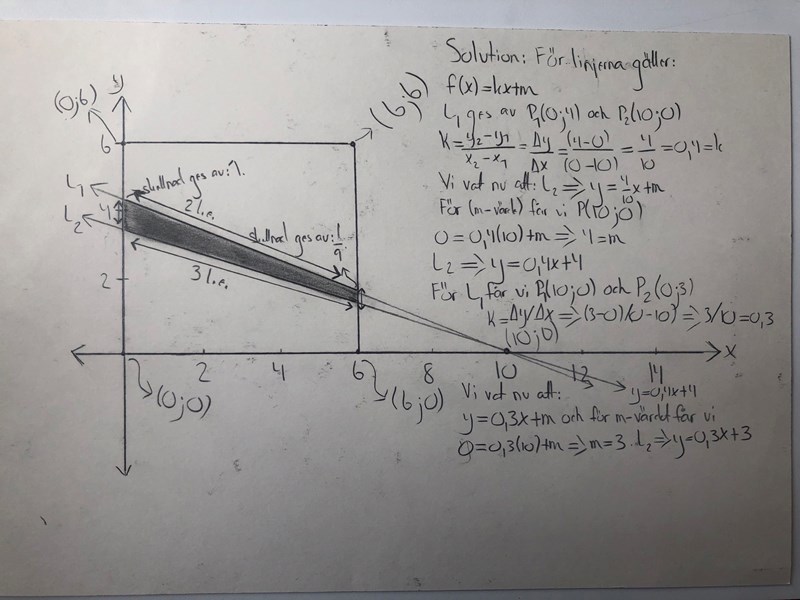 Solution: För linjerna gäller:
f(x)=kx+m
L₁ ges av P₁(0;4) och P₂(10;0)
K=y₂-y₁/x₂-x₁=Δy/Δx=(4-0)/(0-10)=4/10=0,4=k
Vi vet nu att: L₂⇒y=4/10x+m
För (m-värde) får vi P(10;0)
0=0,4(10)+m⇒4=m
L₂⇒y=0,4x+4
För L₁ får vi P₁(10;0) och P₂(0;3)
K=Δy/Δx⇒(3-0)/(0-10)⇒3/10=0,3
(10;0)
Vi vet nu att:
y=0,3x+m och för m-värdet får vi
0=0,3(10)+m⇒m=3. L₂⇒y=0,3x+3
y
(0;6)
(6;6)
6
L₁
skillnad ges av:1.
2l.e.
L₂
4
skillnad ges av:
3l.e.
2
2 4 6 8 10 12 14 x
(0;0)
(6;0)
y=0,4x+4